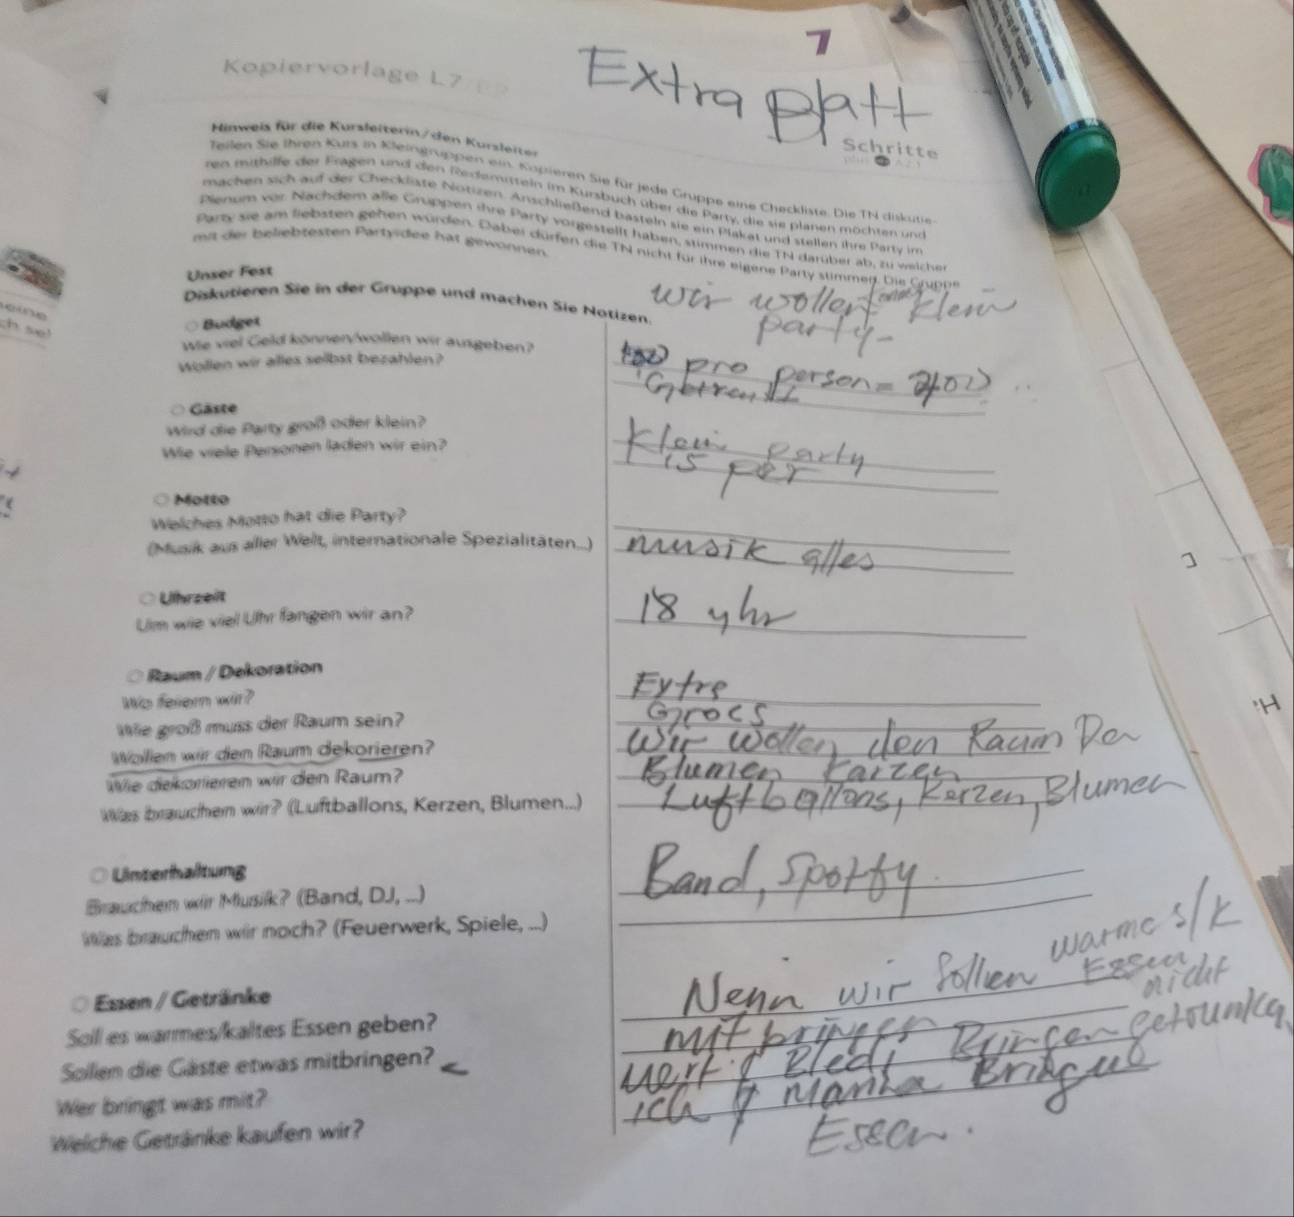 7
Kopiervorlage L7
Extra Blatt
Schritte
Hinweis für die Kursleiterin/den Kursleiter
Teilen Sie Ihren Kurs in Kleingruppen ein. Kopieren Sie für jede Gruppe eine Checkliste. Die TN diskutie-
ren mithilfe der Fragen und den Redemitteln im Kursbuch über die Party, die sie planen möchten und
machen sich auf der Checkliste Notizen. Anschließend basteln sie ein Plakat und stellen ihre Party im
Plenum vor. Nachdem alle Gruppen ihre Party vorgestellt haben, stimmen die TN darüber ab, zu welcher
Party sie am liebsten gehen würden. Dabei dürfen die TN nicht für ihre eigene Party stimmen. Die Gruppe
mit der beliebtesten Partyidee hat gewonnen.
Unser Fest
Diskutieren Sie in der Gruppe und machen Sie Notizen.
wir wollen klein
party-
Budget
Wie viel Geld können/wollen wir ausgeben?
pro person =
Wollen wir alles selbst bezahlen?
Gäste
Wird die Party groß oder klein?
Klein party
Wie viele Personen laden wir ein?
15 per
Motto
Welches Motto hat die Party?
(Musik aus aller Welt, internationale Spezialitäten...)
musik alles
Uhrzeit
Um wie viel Uhr fangen wir an?
18 yhr
Raum / Dekoration
Wo feiern wir?
Wie groß muss der Raum sein?
Grocs
Wollen wir den Raum dekorieren?
Wir wollen den Raum De
Wie dekorieren wir den Raum?
Blumen Karzen
Was brauchen wir? (Luftballons, Kerzen, Blumen...)
Luftballons, Kerzen, Blumen
Unterhaltung
Brauchen wir Musik? (Band, DJ, ...)
Band, Spotfy
Was brauchen wir noch? (Feuerwerk, Spiele, ...)
Essen / Getränke
Soll es warmes/kaltes Essen geben?
Nenin wir sollen warme s/k
Essen nicht
Sollen die Gäste etwas mitbringen?
mitbringen
Wer bringt was mit?
Bledi Bringen
Welche Getränke kaufen wir?
ich
Essen.